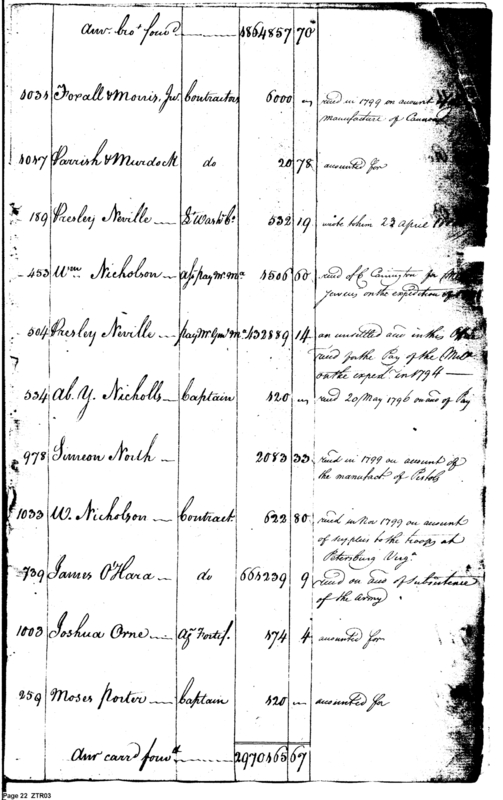 Amt. brot. forwd. 1864857 70
1034 Foxall & Morris, Jr. Contractors 6000 " recd in 1799 on account of
manufacture of Cannon
1047 Parrish & Murdock do 20 78 accounted for
189 Presley Neville Lt Washn Co. 532 19 wrote to him 22 April
453 Wm. Nicholson as. pay Mr. Ma 1506 60 recd of E Carrington for
Jerseys on the expedition of
504 Presley Neville pay Mr Genl Ma 432889 14 an unsettled acco in this Office
recd for the Pay of the Milit
on the exped. in 1794 —
534 Ab. Y. Nicholls Captain 120 " recd 20 May 1796 on acco of Pay
978 Simeon North 2083 33 recd in 1799 on account of
the manufact of Pistols
1033 W. Nicholson Contract. 622 80 recd in Nov 1799 on account
of supplies to the troops at
Petersburg Virga
739 James O'Hara do 661239 9 recd on acco of subsistence
of the Army
1003 Joshua Orne Agt. Fortif. 174 4 accounted for
259 Moses Porter Captain 120 " accounted for
Amt carrd forwd. 2970165 67
Page 22 ZTR03